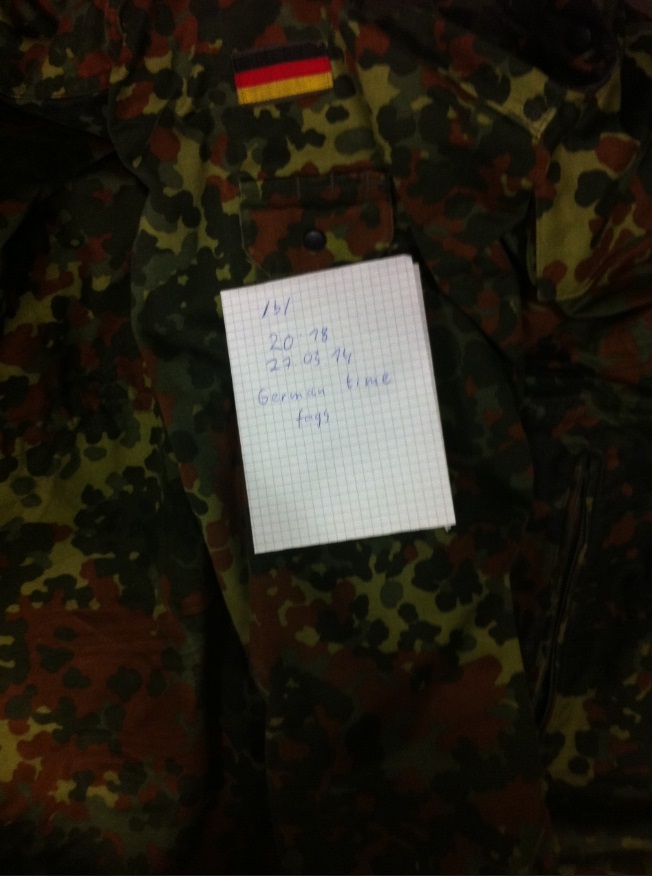 /b/
20:18
27.03.14
German time
fags